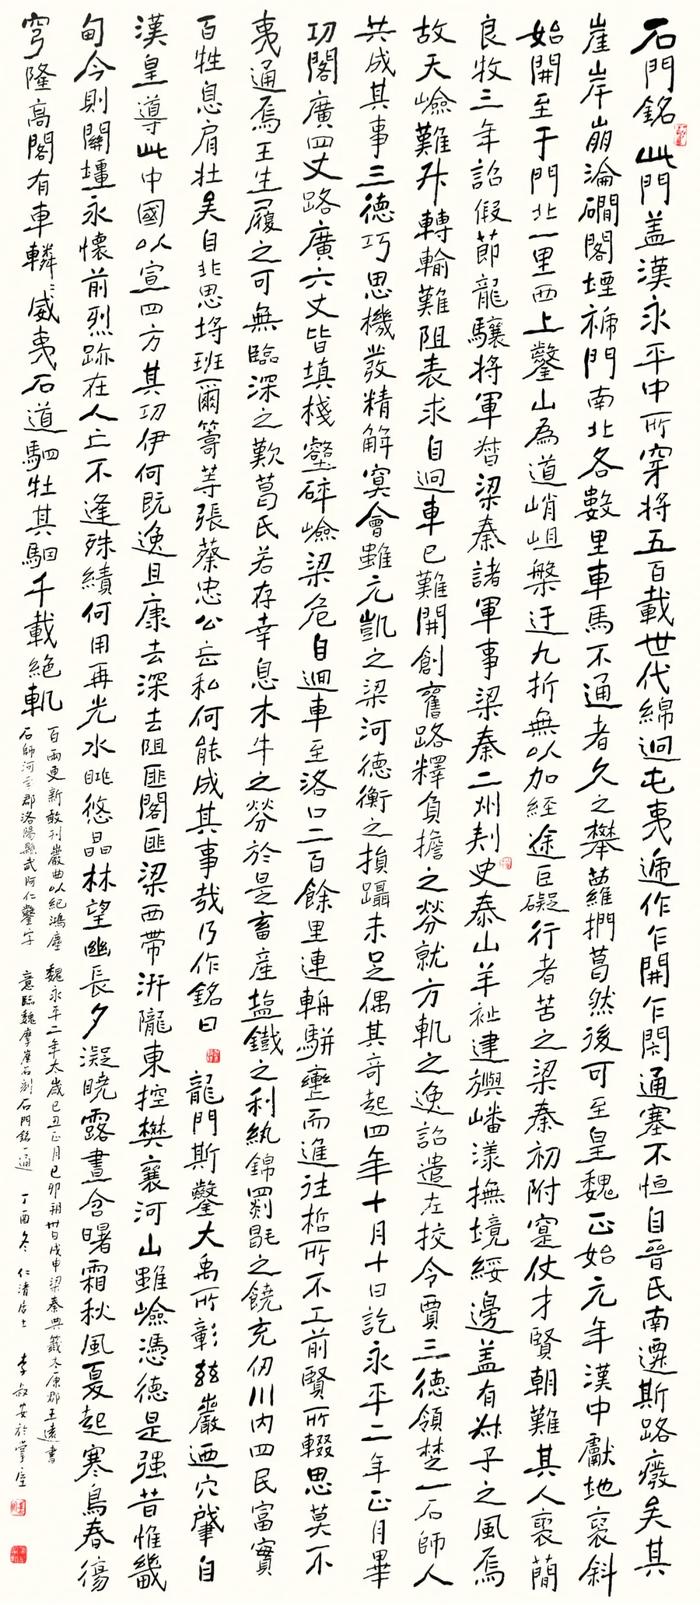 石門銘 此門盖漢永平中所穿將五百載世代綿迥屯夷遞作乍開乍閇通塞不恒自晉氏南遷斯路癈矣其
崖岸崩淪磵閣堙褫門南北各數里車馬不通者久之攀蘿捫葛然後可至皇魏正始元年漢中獻地裒斜
始開至于門北一里西上鑿山為道峭岨槃迂九折無以加經途巨礙行者苦之梁秦初附寔仗才賢朝難其人裒簡
良牧三年詔假節龍驤將軍督梁秦諸軍事梁秦二州刾史泰山羊祉建旟嶓漾撫境綏邊盖有叔子之風焉
故天嶮難升轉輸難阻表求自迴車已難開創舊路釋負擔之勞就方軌之逸詔遣左挍令賈三德領楚一石師人
共成其事三德巧思機發精解冥會雖元凱之梁河德衡之損躡未足偶其奇起四年十月十日訖永平二年正月畢
功閣廣四丈路廣六丈皆填棧壑砰嶮梁危自迴車至洛口二百餘里連輈駢轡而進往哲所不工前賢所輟思莫不
夷通焉王生履之可無臨深之歎葛氏若存幸息木牛之勞於是畜産盐鐵之利紈錦罽毼之饒充仞川內四民富實
百牲息肩壯矣自非思埒班爾籌等張蔡忠公忘私何能成其事哉乃作銘曰 龍門斯鑿大禹所彰玆巖迺穴肇自
漢皇導此中國以宣四方其功伊何既逸且康去深去阻匪閣匪梁西帶汧隴東控樊襄河山雖嶮憑德是强昔惟畿
甸今則關壃永懷前烈跡在人亡不逢殊績何用再光水眺悠晶林望幽長夕凝曉露晝含曙霜秋風夏起寒鳥春傷
穹隆高閣有車轔〻威夷石道駟牡其駟千載絕軌
百兩更新敢刊巖曲以紀鴻塵 魏永平二年太歲己丑正月己卯朔卅日戊申梁秦典籤太原郡王遠書
石師河南郡洛陽縣武阿仁鑿字 意臨魏摩崖石刻石門銘一通 丁酉冬 仁濤居士 李叔安於掌廬